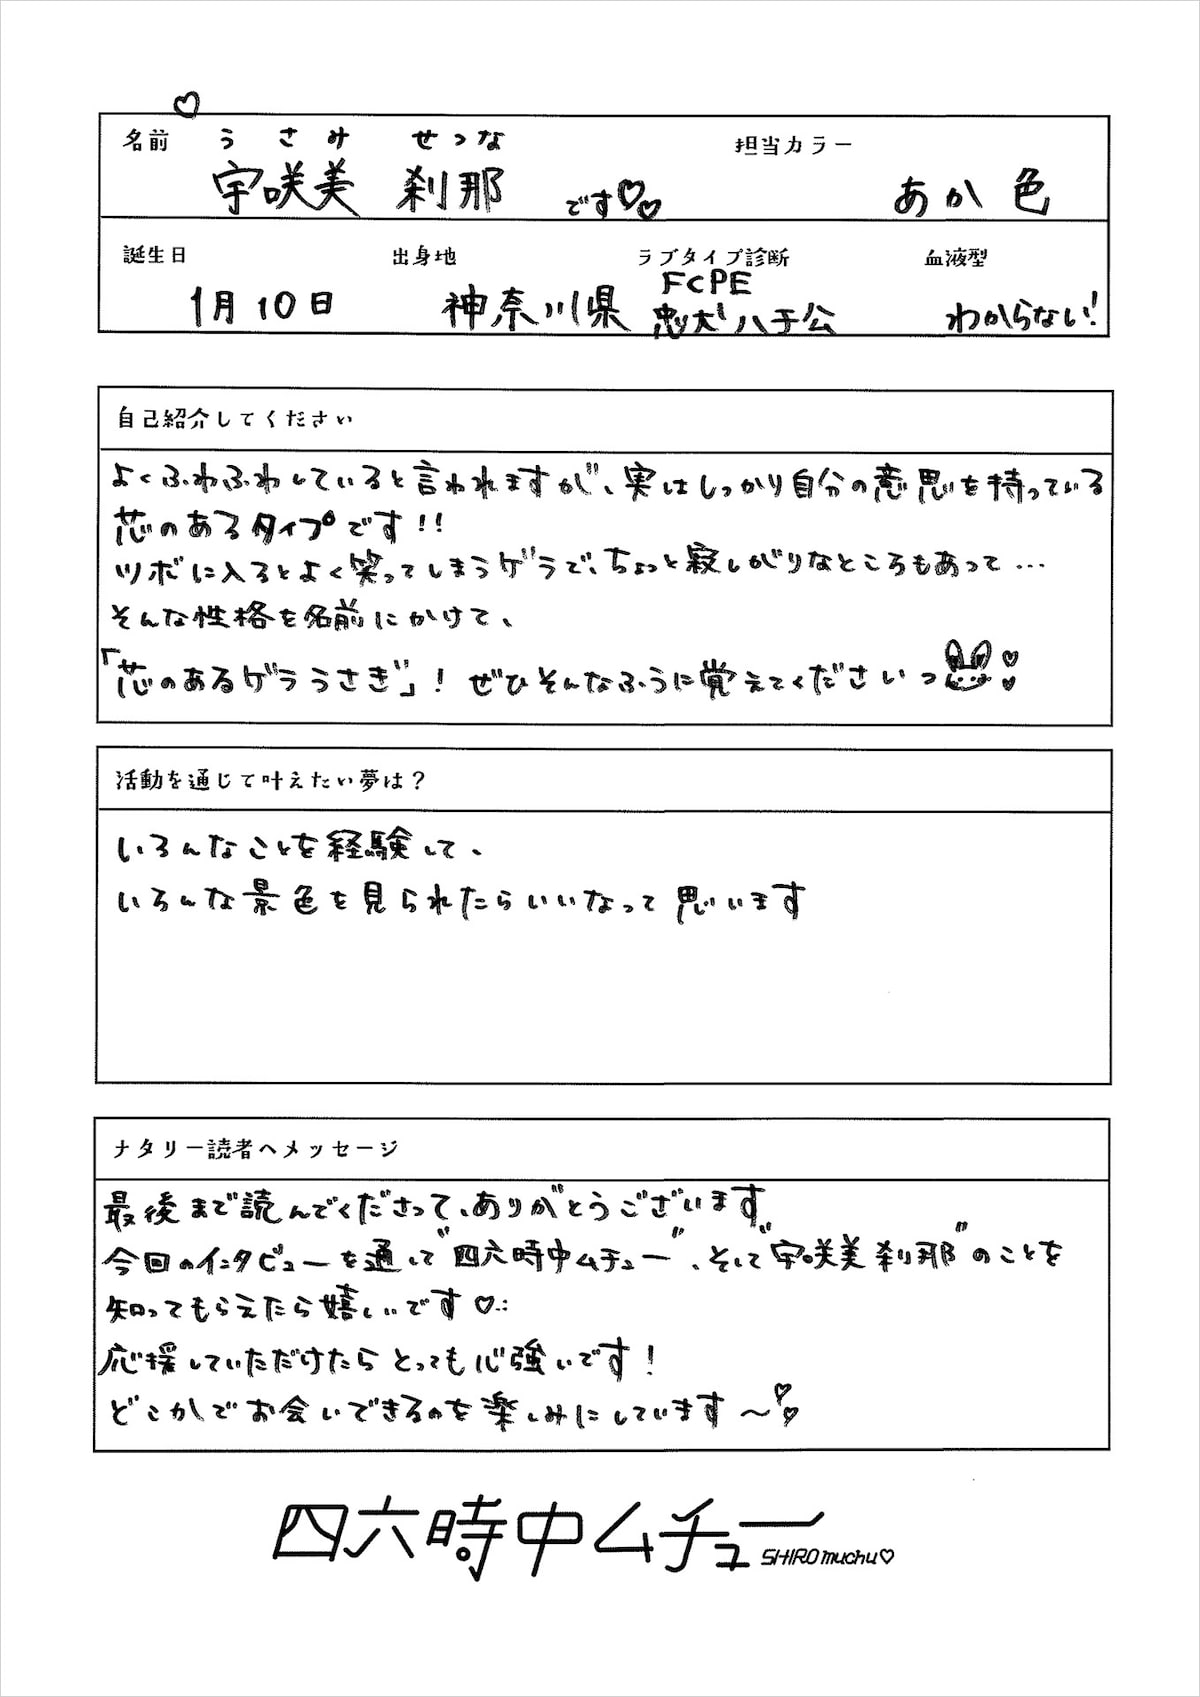 名前 うさみ せつな
宇咲美 刹那 です♡♡
担当カラー
あか色
誕生日
1月10日
出身地
神奈川県
ラブタイプ診断
FCPE
忠犬ハチ公
血液型
わからない!
自己紹介してください
よくふわふわしていると言われますが、実はしっかり自分の意思を持っている
芯のあるタイプです!!
ツボに入るとよく笑ってしまうゲラで、ちょっと寂しがりなところもあって…
そんな性格を名前にかけて、
「芯のあるゲラうさぎ」! ぜひそんなふうに覚えてくださいっ
活動を通じて叶えたい夢は?
いろんなことを経験して、
いろんな景色を見られたらいいなって思います
ナタリー読者へメッセージ
最後まで読んでくださって、ありがとうございます
今回のインタビューを通して"四六時中ムチュー"、そして"宇咲美刹那"のことを
知ってもらえたら嬉しいです♡
応援していただけたらとっても心強いです!
どこかでお会いできるのを楽しみにしています〜♡
四六時中ムチュー SHIROmuchu♡